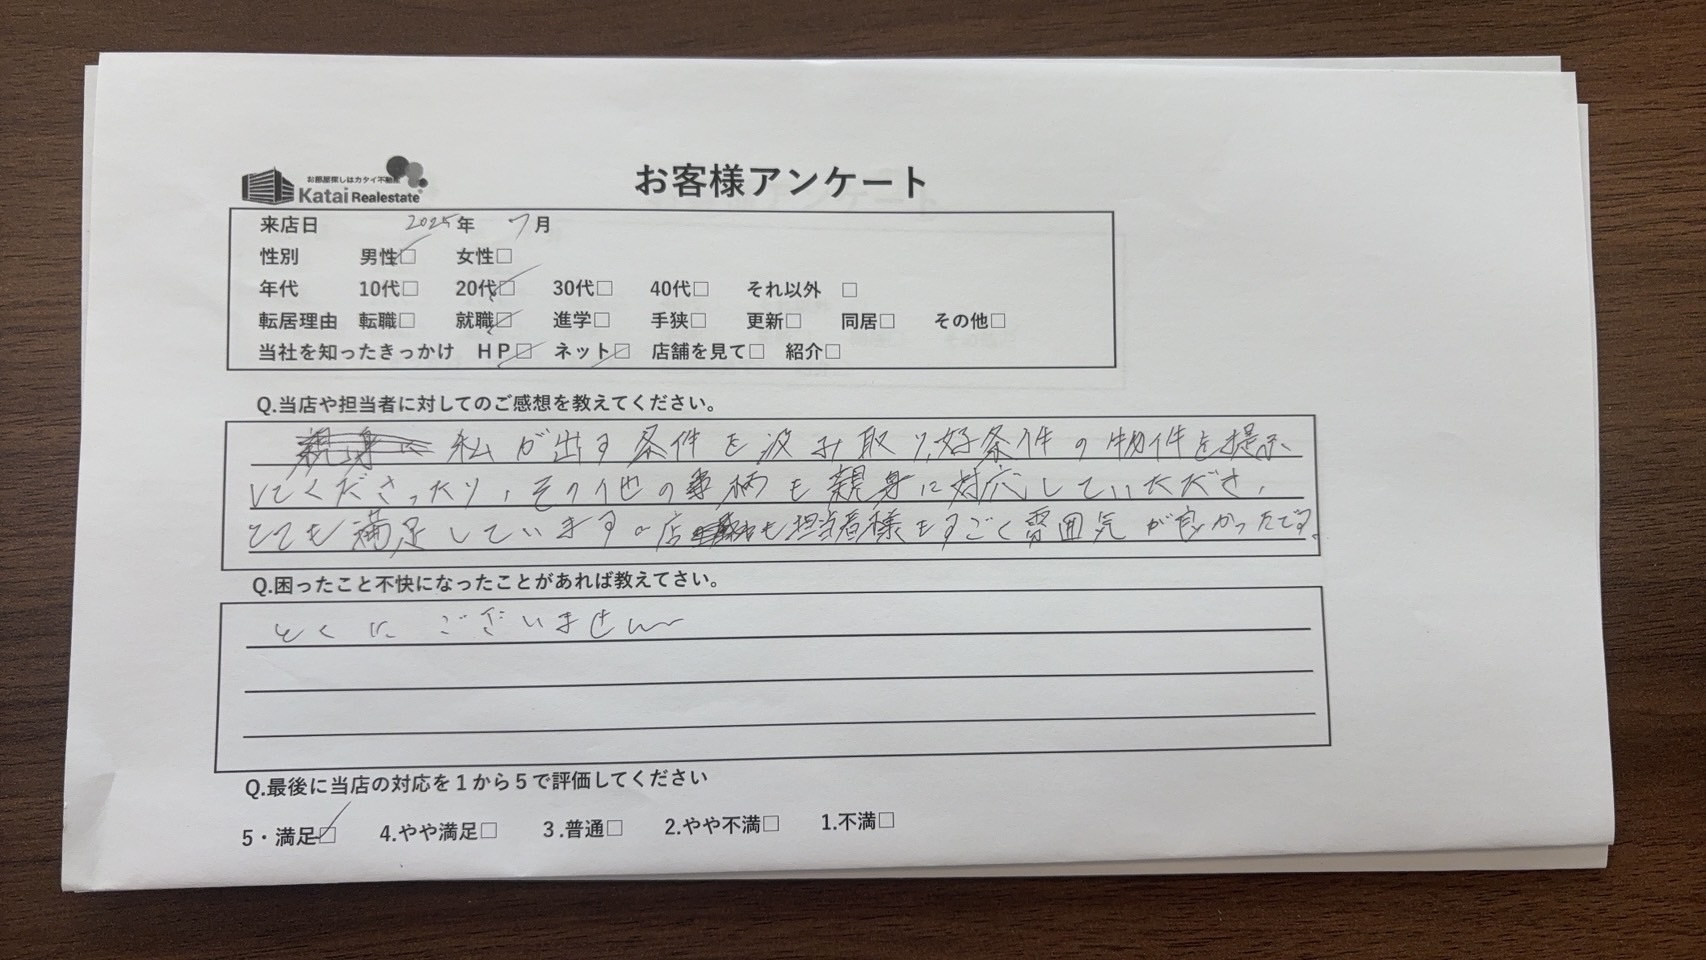 お部屋探しはカタイ不動産
Katai Realestate
お客様アンケート
来店日 2025年 7月
性別 男性☑ 女性□
年代 10代□ 20代☑ 30代□ 40代□ それ以外 □
転居理由 転職□ 就職☑ 進学□ 手狭□ 更新□ 同居□ その他□
当社を知ったきっかけ HP☑ ネット☑ 店舗を見て□ 紹介□
Q.当店や担当者に対してのご感想を教えてください。
私が出す条件を汲み取り、好条件の物件を提示
してくださったり、その他の事柄も親身に対応していただき、
とても満足しています。店も担当者様もすごく雰囲気が良かったです。
Q.困ったこと不快になったことがあれば教えてさい。
とくにございません
Q.最後に当店の対応を1から5で評価してください
5・満足☑ 4.やや満足□ 3.普通□ 2.やや不満□ 1.不満□